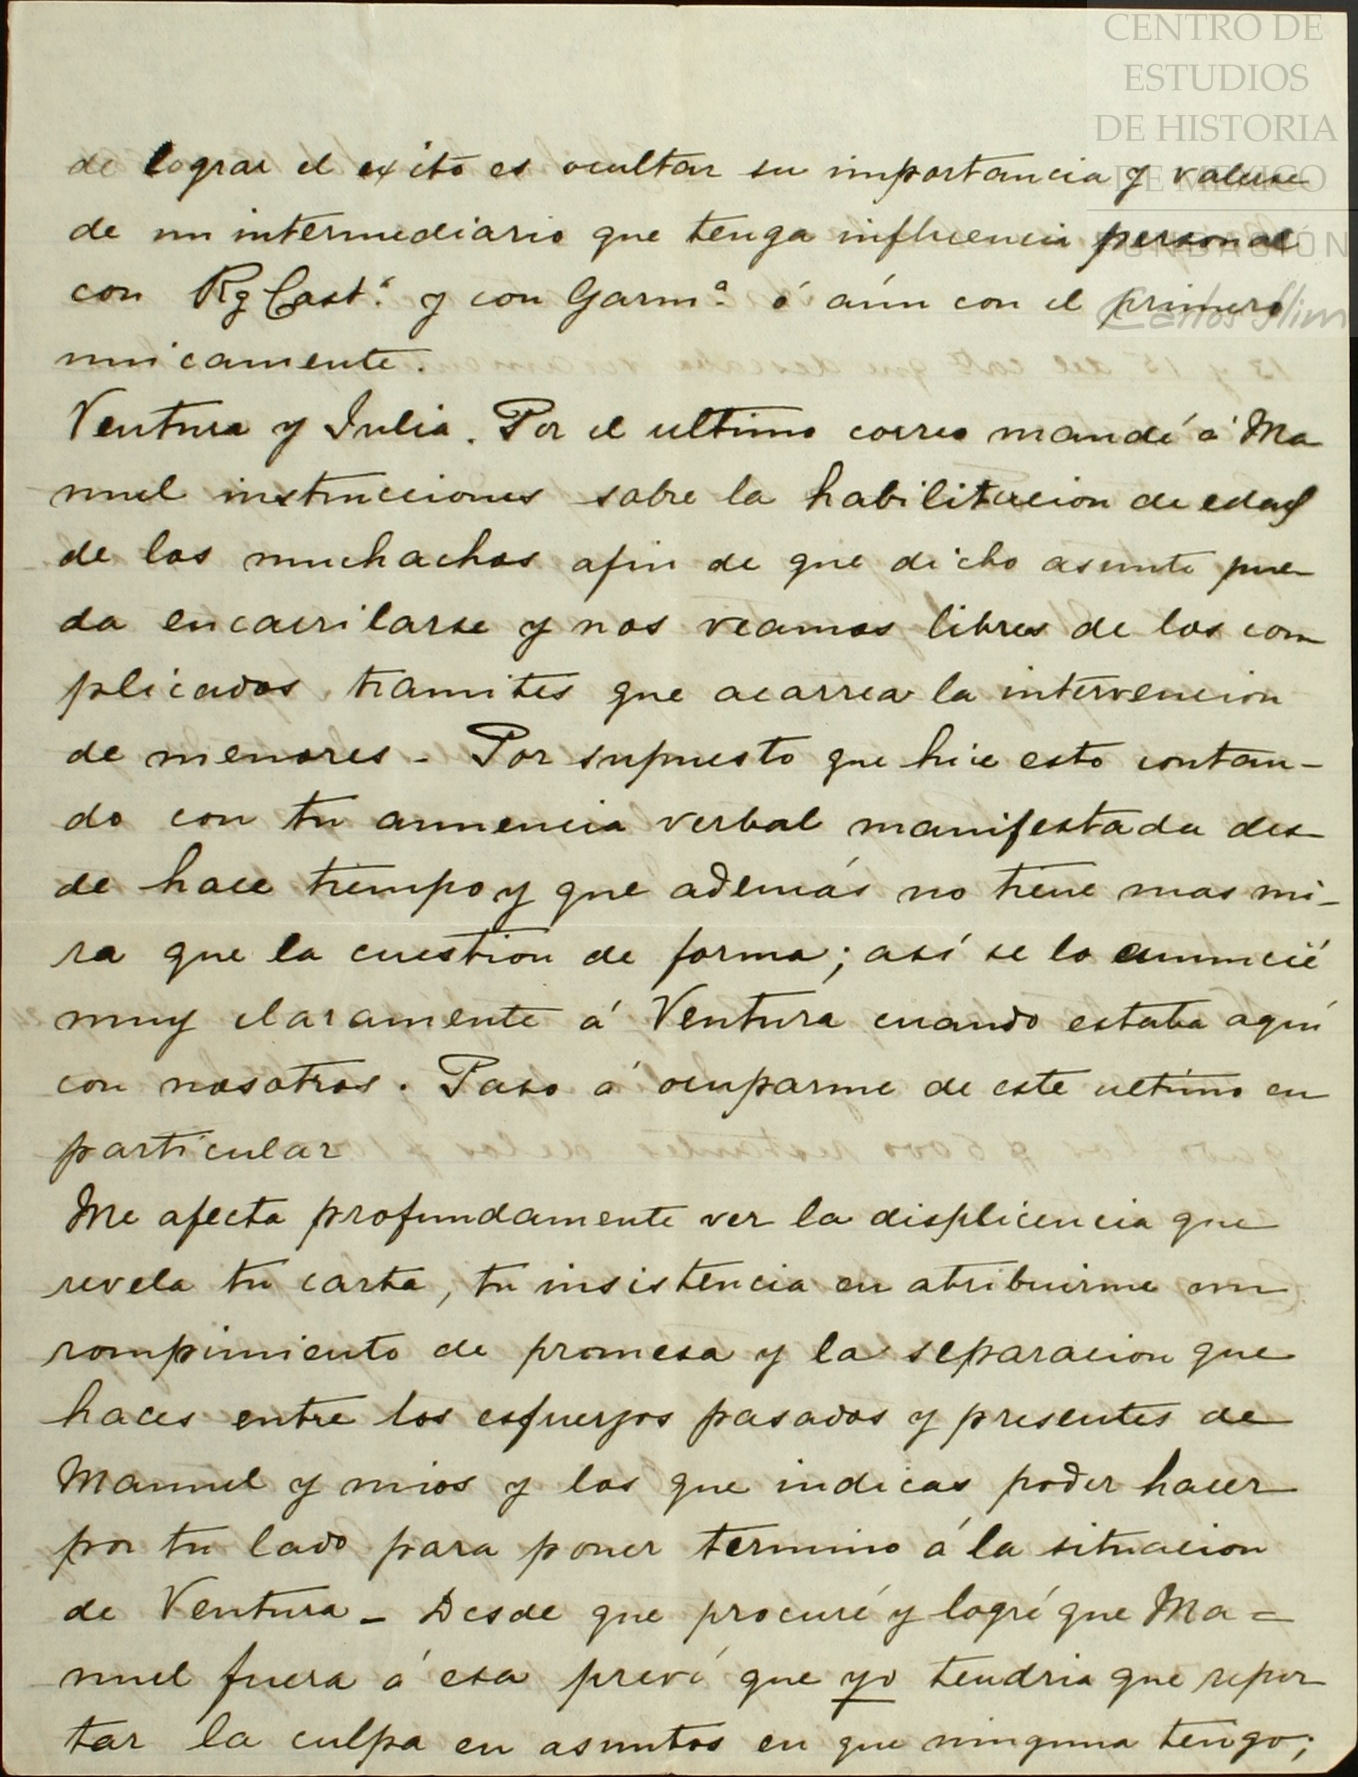 CENTRO DE
ESTUDIOS
DE HISTORIA
DE MÉXICO
FUNDACIÓN
Carlos Slim
de lograr el exito es ocultar su importancia y valerse
de un intermediario que tenga influencia personal
con Rg Cast.ª y con Garm.ª ó aún con el primero
unicamente.
Ventura y Julia. Por el ultimo correo mandé á Ma
nuel instrucciones sobre la habilitacion de edad
de los muchachos afin de que dicho asunto pue
da encarrilarse y nos veamos libres de los com
plicados tramites que acarrea la intervencion
de menores - Por supuesto que hice esto contan-
do con tu anuencia verbal manifestada des
de hace tiempo y que además no tiene mas mi-
ra que la cuestion de forma; así se lo anuncié
muy claramente á Ventura cuando estaba aquí
con nosotros. Paso á ocuparme de este ultimo en
particular
Me afecta profundamente ver la displicencia que
revela tu carta, tu insistencia en atribuirme un
rompimiento de promesa y la separacion que
haces entre los esfuerzos pasados y presentes de
Manuel y mios y los que indicas poder hacer
por tu lado para poner termino á la situacion
de Ventura - Desde que procuré y logré que Ma=
nuel fuera á esa preví que yo tendria que repor
tar la culpa en asuntos en que ninguna tengo;